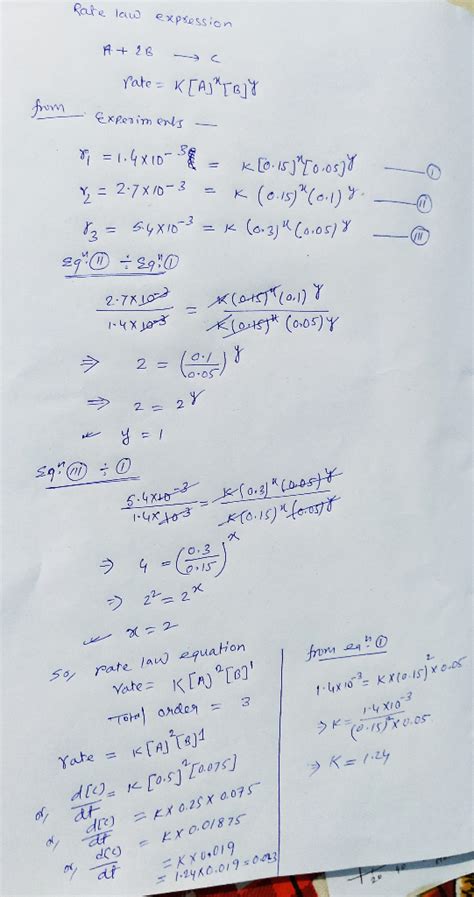 Rate law expression
A + 2B → C
rate = K[A]^x[B]^y
from Experiments —
r₁ = 1.4×10⁻³ = K[0.15]^x[0.05]^y —— (I)
r₂ = 2.7×10⁻³ = K(0.15)^x(0.1)^y —— (II)
r₃ = 5.4×10⁻³ = K(0.3)^x(0.05)^y —— (III)
Eqⁿ: (II) ÷ Eqⁿ: (I)
2.7×10⁻³/1.4×10⁻³ = K(0.15)^x(0.1)^y/K(0.15)^x(0.05)^y
⇒ 2 = (0.1/0.05)^y
⇒ 2 = 2^y
y = 1
Eqⁿ: (III) ÷ (I)
5.4×10⁻³/1.4×10⁻³ = K(0.3)^x(0.05)^y/K(0.15)^x(0.05)^y
⇒ 4 = (0.3/0.15)^x
⇒ 2² = 2^x
x = 2
So, rate law equation
rate = K[A]²[B]¹
Total order = 3
rate = K[A]²[B]1
or, d[C]/dt = K[0.5]²[0.075]
or, d[C]/dt = K×0.25×0.075
or, d[C]/dt = K×0.01875
= K×0.019
= 1.24×0.019 = 0.023
from eqⁿ: (I)
1.4×10⁻³ = K×(0.15)²×0.05
⇒ K = 1.4×10⁻³/(0.15)²×0.05
⇒ K = 1.24